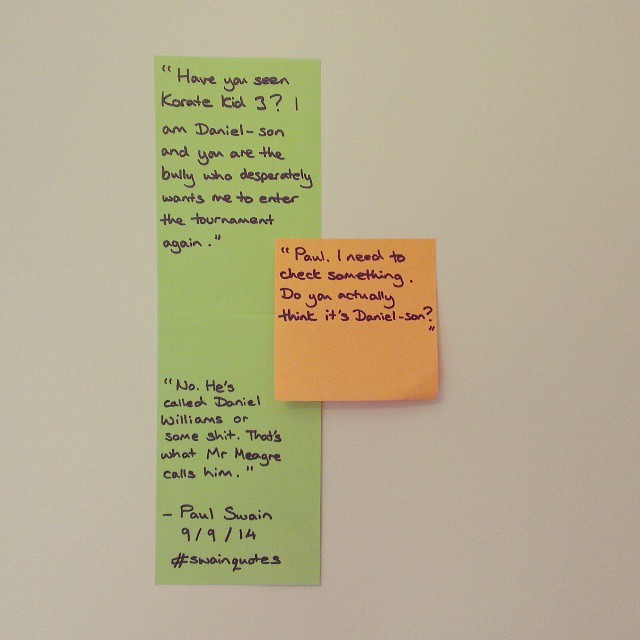 “Have you seen
Karate Kid 3? I
am Daniel-son
and you are the
bully who desperately
wants me to enter
the tournament
again.”
“Paul. I need to
check something.
Do you actually
think it's Daniel-son?
”
“No. He's
called Daniel
Williams or
some shit. That's
what Mr Meagre
calls him.”
- Paul Swain
9/9/14
#swainquotes